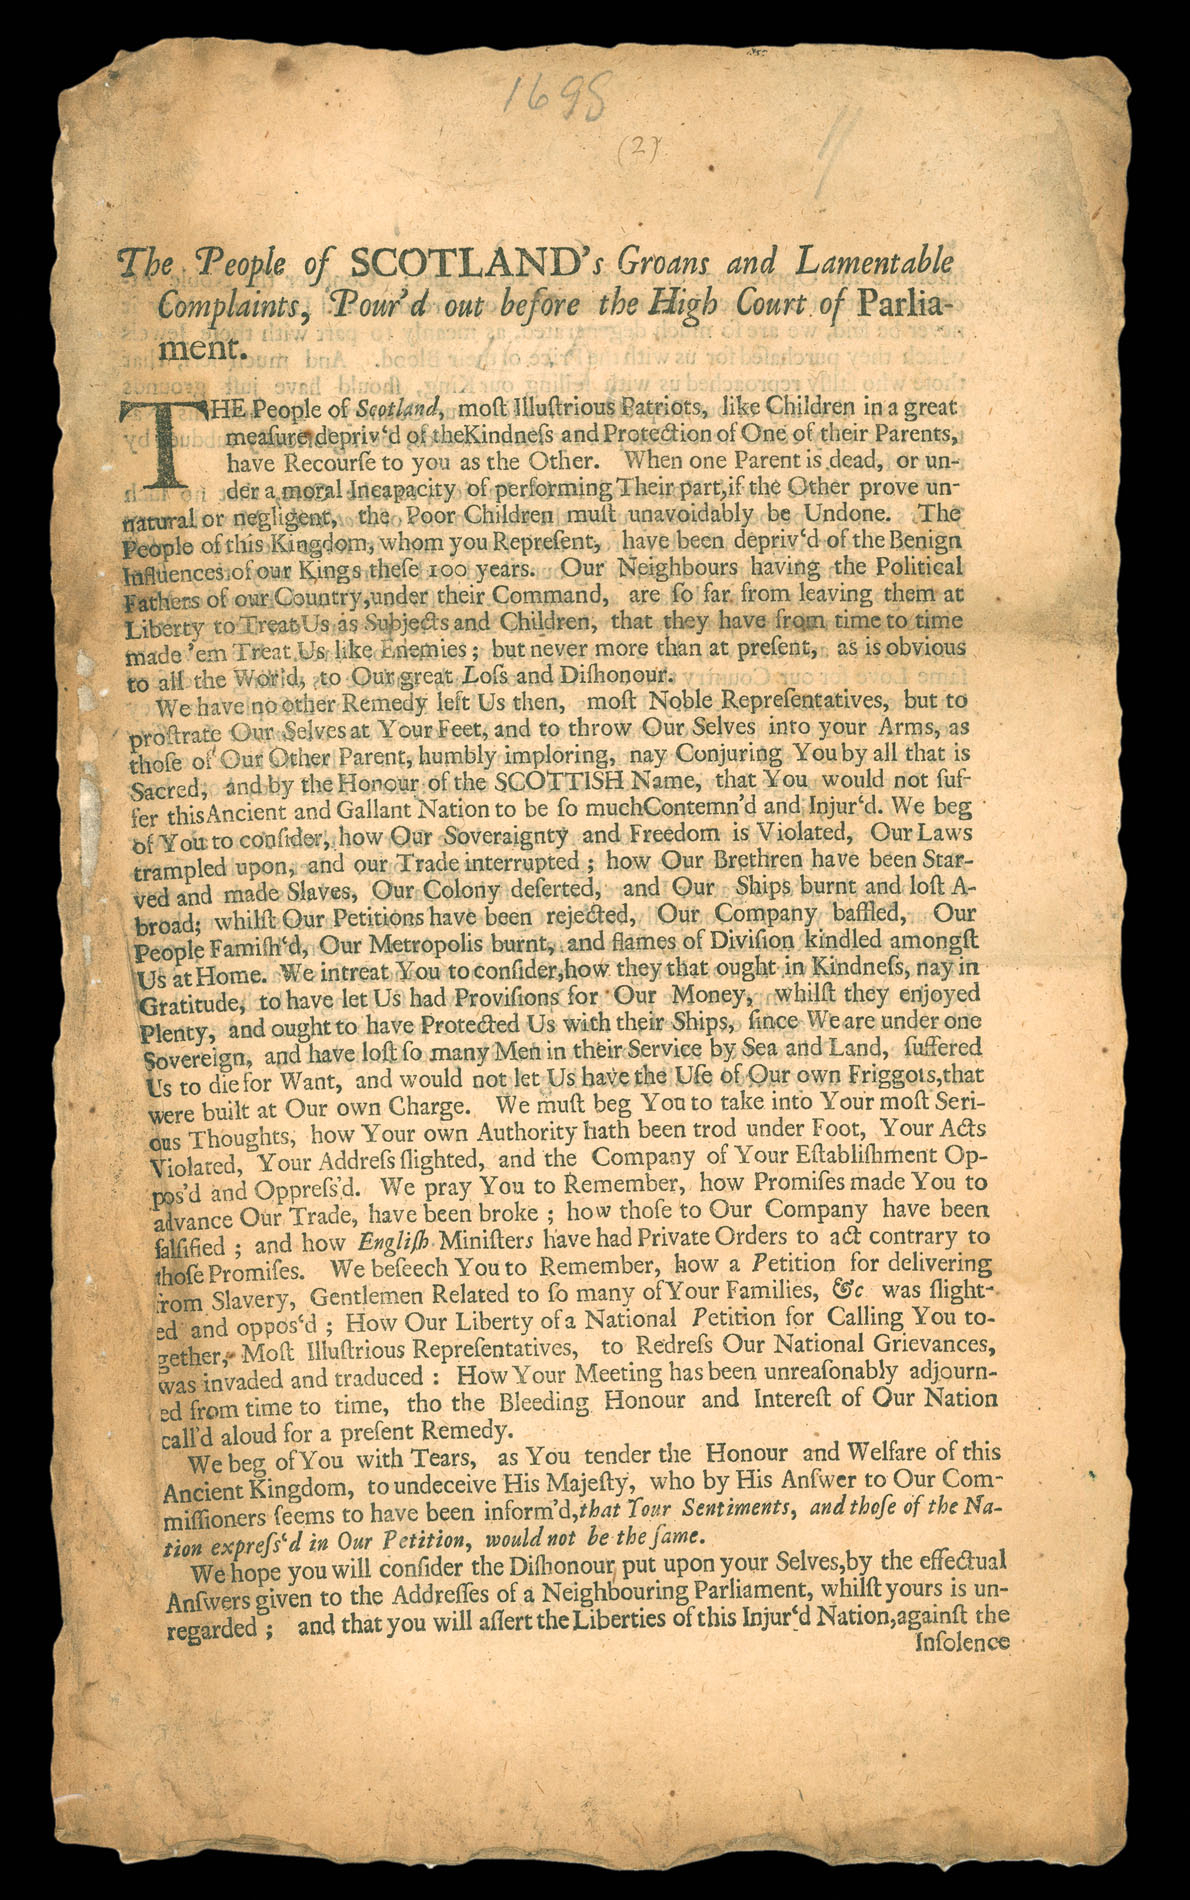 1698
(2)
The People of SCOTLAND's Groans and Lamentable
Complaints, Pour'd out before the High Court of Parlia-
ment.
THE People of Scotland, moſt Illuſtrious Patriots, like Children in a great
meaſure depriv‘d of theKindneſs and Protection of One of their Parents,
have Recourſe to you as the Other. When one Parent is dead, or un-
der a moral Incapacity of performing Their part,if the Other prove un-
natural or negligent, the Poor Children muſt unavoidably be Undone. The
People of this Kingdom, whom you Repreſent, have been depriv‘d of the Benign
Influences of our Kings theſe 100 years. Our Neighbours having the Political
Fathers of our Country,under their Command, are ſo far from leaving them at
Liberty to Treat Us as Subjects and Children, that they have from time to time
made 'em Treat Us like Enemies; but never more than at preſent, as is obvious
to all the World, to Our great Loſs and Diſhonour.
We have no other Remedy left Us then, moſt Noble Repreſentatives, but to
proſtrate Our Selves at Your Feet, and to throw Our Selves into your Arms, as
thoſe of Our Other Parent, humbly imploring, nay Conjuring You by all that is
Sacred, and by the Honour of the SCOTTISH Name, that You would not ſuf-
fer thisAncient and Gallant Nation to be ſo muchContemn'd and Injur‘d. We beg
of You to conſider, how Our Soveraignty and Freedom is Violated, Our Laws
trampled upon, and our Trade interrupted; how Our Brethren have been Star-
ved and made Slaves, Our Colony deſerted, and Our Ships burnt and loſt A-
broad; whilſt Our Petitions have been rejected, Our Company baffled, Our
People Famiſh‘d, Our Metropolis burnt, and flames of Diviſion kindled amongſt
Us at Home. We intreat You to conſider,how they that ought in Kindneſs, nay in
Gratitude, to have let Us had Proviſions for Our Money, whilſt they enjoyed
Plenty, and ought to have Protected Us with their Ships, ſince We are under one
Sovereign, and have loſt ſo many Men in their Service by Sea and Land, ſuffered
Us to die for Want, and would not let Us have the Uſe of Our own Friggots,that
were built at Our own Charge. We muſt beg You to take into Your moſt Seri-
ous Thoughts, how Your own Authority hath been trod under Foot, Your Acts
Violated, Your Addreſs ſlighted, and the Company of Your Eſtabliſhment Op-
pos'd and Oppreſs'd. We pray You to Remember, how Promiſes made You to
advance Our Trade, have been broke; how thoſe to Our Company have been
falſified; and how Engliſh Miniſters have had Private Orders to act contrary to
thoſe Promiſes. We beſeech You to Remember, how a Petition for delivering
from Slavery, Gentlemen Related to ſo many of Your Families, &c was ſlight-
ed and oppos‘d; How Our Liberty of a National Petition for Calling You to-
gether, Moſt Illuſtrious Repreſentatives, to Redreſs Our National Grievances,
was invaded and traduced: How Your Meeting has been unreaſonably adjourn-
ed from time to time, tho the Bleeding Honour and Intereſt of Our Nation
call'd aloud for a preſent Remedy.
We beg of You with Tears, as You tender the Honour and Welfare of this
Ancient Kingdom, to undeceive His Majeſty, who by His Anſwer to Our Com-
miſſioners ſeems to have been inform'd,that Your Sentiments, and thoſe of the Na-
tion expreſs‘d in Our Petition, would not be the ſame.
We hope you will conſider the Diſhonour put upon your Selves,by the effectual
Anſwers given to the Addreſſes of a Neighbouring Parliament, whilſt yours is un-
regarded; and that you will aſſert the Liberties of this Injur‘d Nation,againſt the
Inſolence